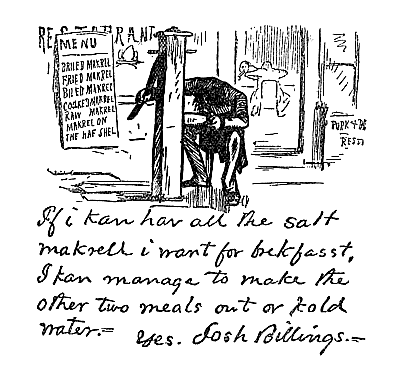 RESTAURANT
MENU
BRIED MAKREL
FRIED MAKREL
BILED MAKREL
COLKED MAKREL
RAW MAKREL
MAKREL ON
THE HAF SHEL
PORK & B
REST
If i kan hav all the salt
makrell i want for brekfasst,
I kan manage to make the
other two meals out ov kold
water.=
Yes. Josh Billings.=